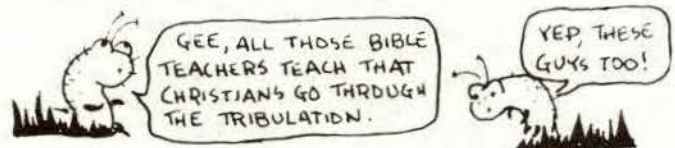 GEE, ALL THOSE BIBLE
TEACHERS TEACH THAT
CHRISTIANS GO THROUGH
THE TRIBULATION.
YEP, THESE
GUYS TOO!